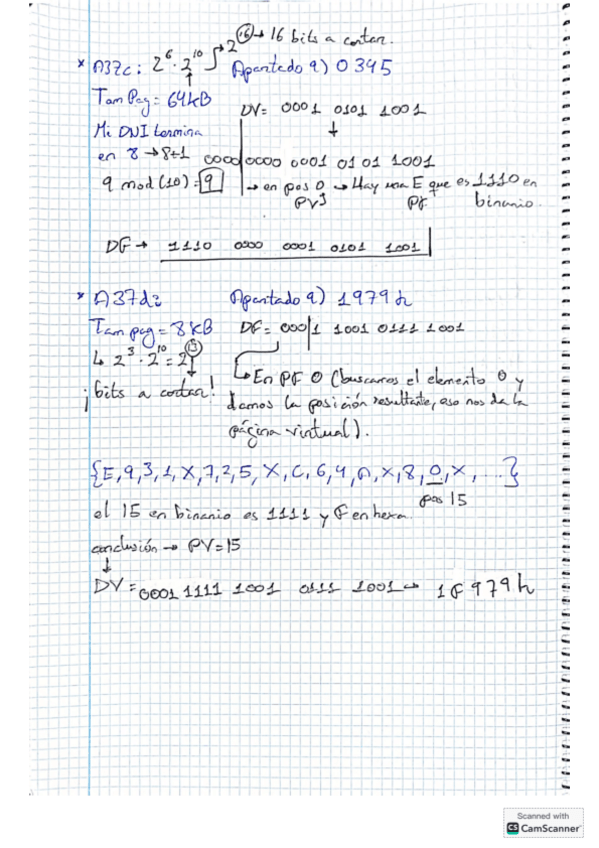 * A37c: 2⁶ · 2¹⁰ } → 2¹⁶ → 16 bits a contar.
Apartado 9) 0345
Tam Pag = 64kB
DV = 0001 0101 1001
Mi DNI termina
en 8 → 8+1
0000 0000 0001 0101 1001
9 mod (10) = 9
→ en pos 0 → Hay una E que es 1110 en
PV PF binario.
DF → 1110 0000 0001 0101 1001
* A37d: Apartado 9) 1979h
Tam pag = 8kB DF = 000|1 1001 0111 1001
↳ 2³ · 2¹⁰ = 2¹³
¡bits a cortar!
↳ En PF 0 (buscamos el elemento 0 y
damos la posición resultante, eso nos da la
página virtual).
{E,9,3,1,X,7,2,5,X,C,6,4,A,X,8,0,X,...}
pos 15
el 15 en binario es 1111 y F en hexa.
conclusión → PV=15
↓
DV = 0001 1111 1001 0111 1001 → 1F979h
Scanned with
CS CamScanner